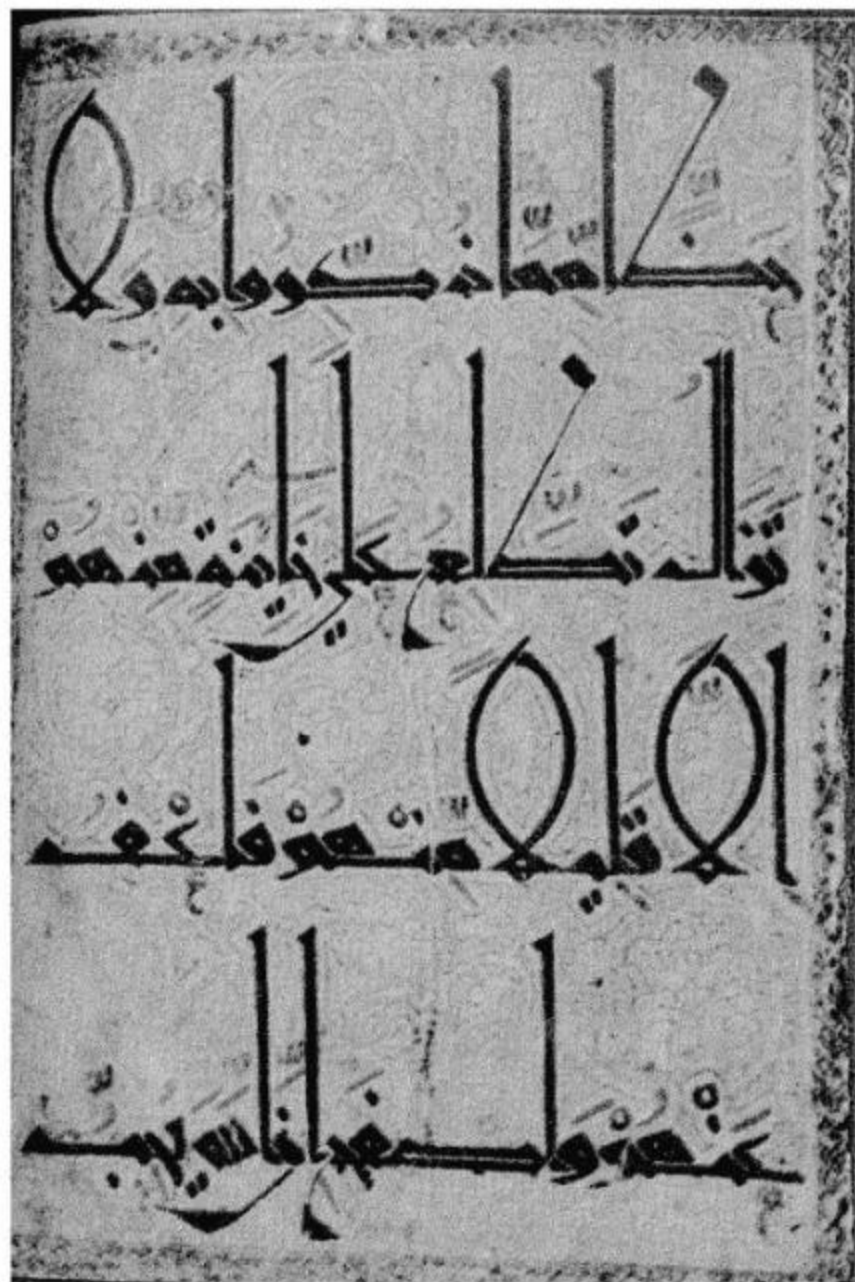 حظا مما ذكروا به ولا
تزال تطلع على خاينة منهم
الا قليلا منهم فاعف
عنهم واصفح ان الله يحب